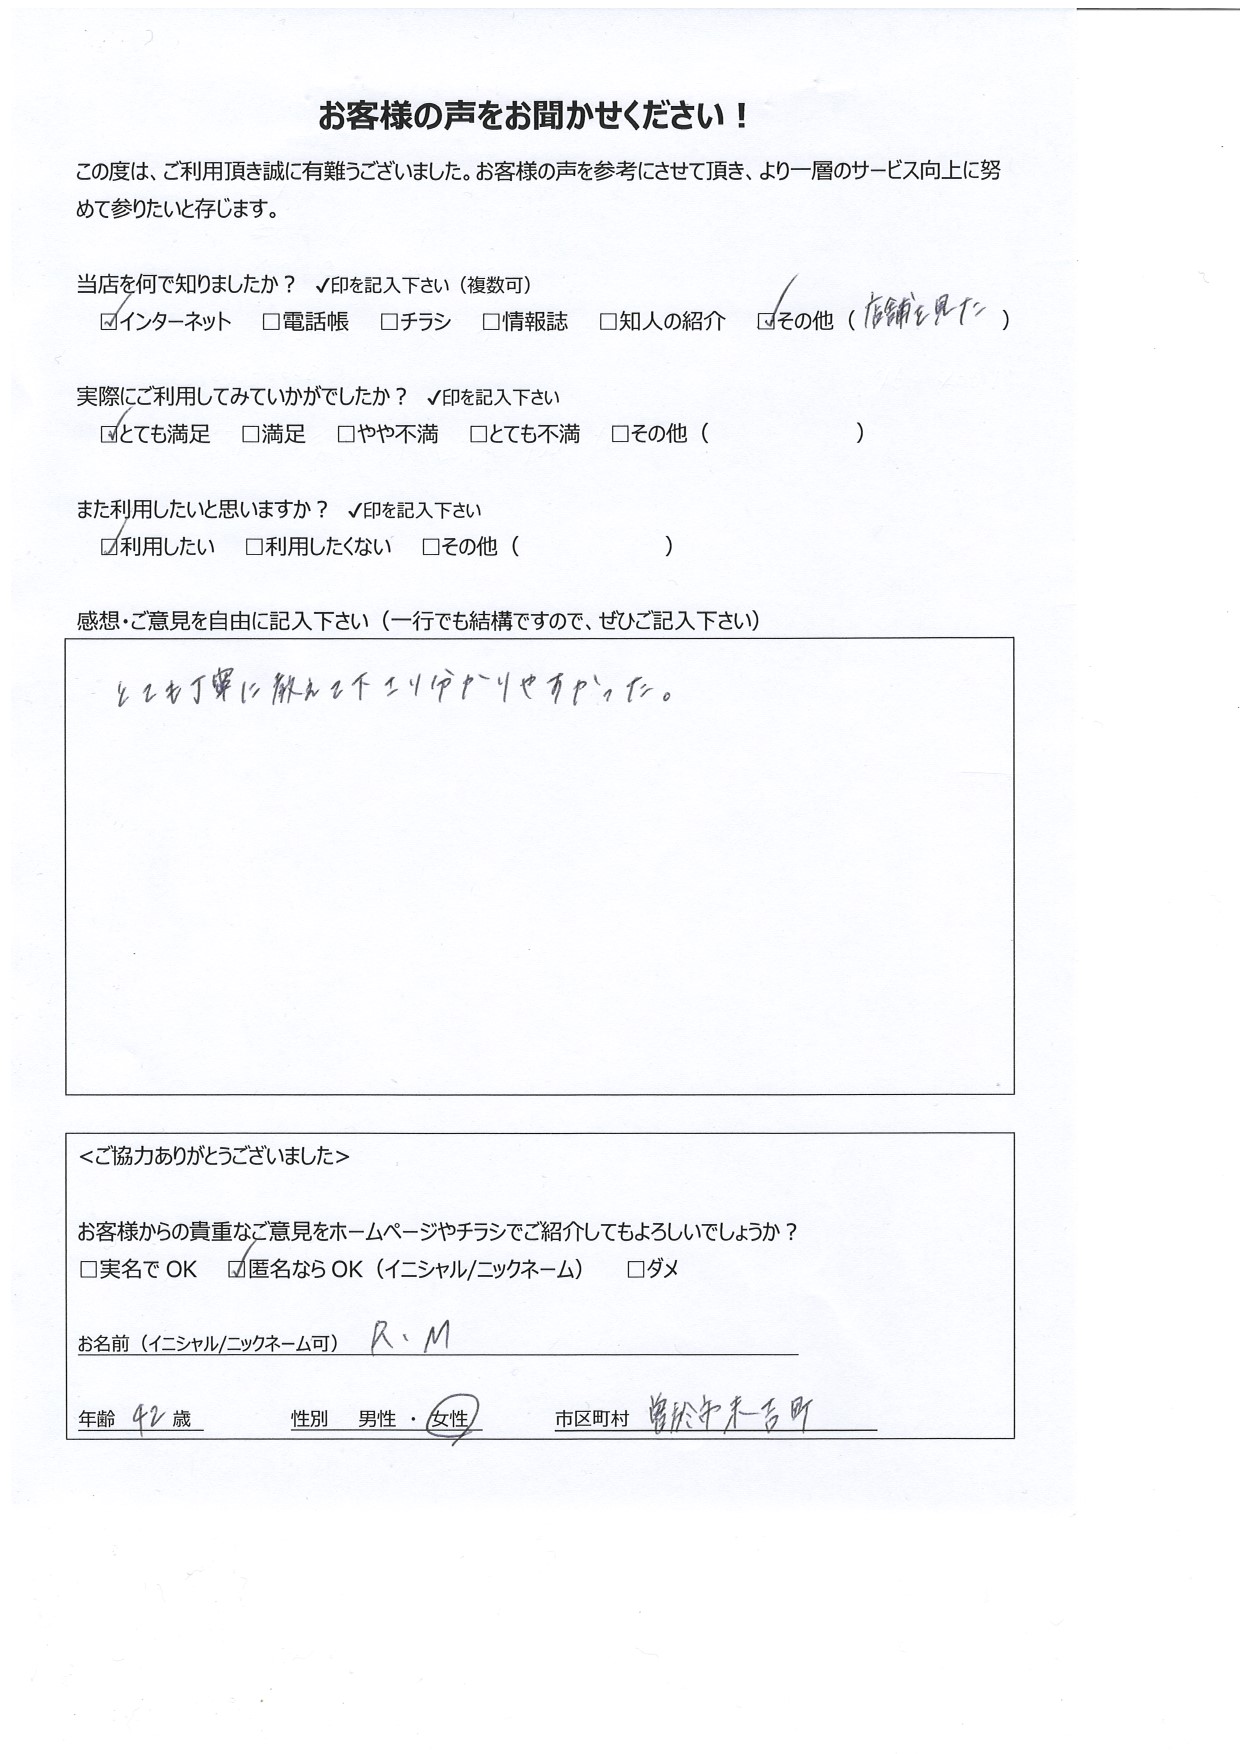 お客様の声をお聞かせください！
この度は、ご利用頂き誠に有難うございました。お客様の声を参考にさせて頂き、より一層のサービス向上に努
めて参りたいと存じます。
当店を何で知りましたか？ ✓印を記入下さい（複数可）
☑インターネット □電話帳 □チラシ □情報誌 □知人の紹介 ☑その他（ 店舗を見た ）
実際にご利用してみていかがでしたか？ ✓印を記入下さい
☑とても満足 □満足 □やや不満 □とても不満 □その他（ ）
また利用したいと思いますか？ ✓印を記入下さい
☑利用したい □利用したくない □その他（ ）
感想・ご意見を自由に記入下さい（一行でも結構ですので、ぜひご記入下さい）
とても丁寧に教えて下さり分かりやすかった。
<ご協力ありがとうございました>
お客様からの貴重なご意見をホームページやチラシでご紹介してもよろしいでしょうか？
□実名で OK ☑匿名なら OK（イニシャル/ニックネーム） □ダメ
お名前（イニシャル/ニックネーム可） R、M
年齢 42 歳 性別 男性 ・ 女性 市区町村 曽於市末吉町